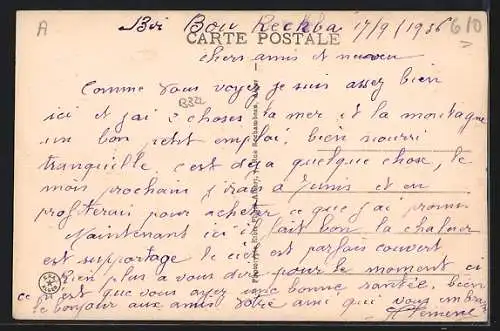 A
Bir Bou Rechba 17/9/1936 610
CARTE POSTALE
chers amis et neveu
Comme vous voyez je suis assez bien
B332
ici et j'ai 3 choses la mer et la montagne
un bon petit emploi, bien nourri
tranquille c'est déja quelque chose, le
mois prochain j'irai a Tunis et en
profiterai pour acheter ce que j'ai promis
Maintenant ici il fait bon la chaleur
est supportage le ciel est parfois couvert
Rien plus a vous dire pour le moment si
ce n'est que vous ayez une bonne santée, bien
le bonjour aux amis votre ami qui vous embrasse